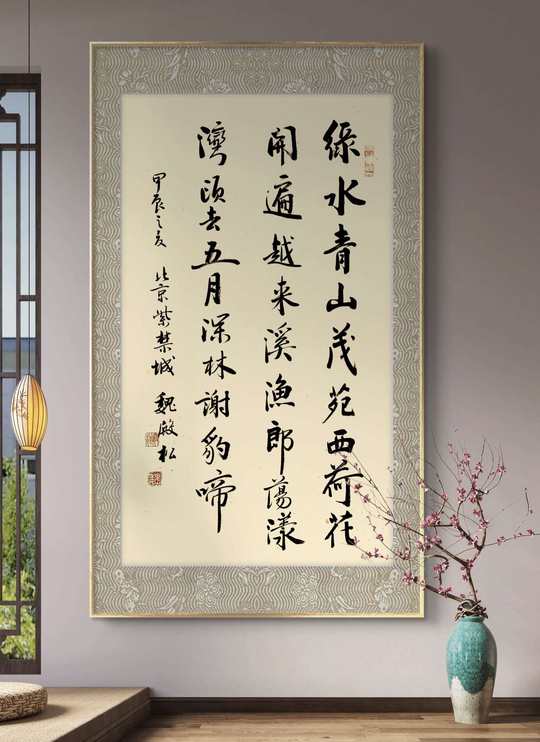 綠水青山茂苑西荷花
開遍越来溪漁郎蕩漾
灣頭去五月深林謝豹啼
甲辰之夏 北京紫禁城 魏殿松